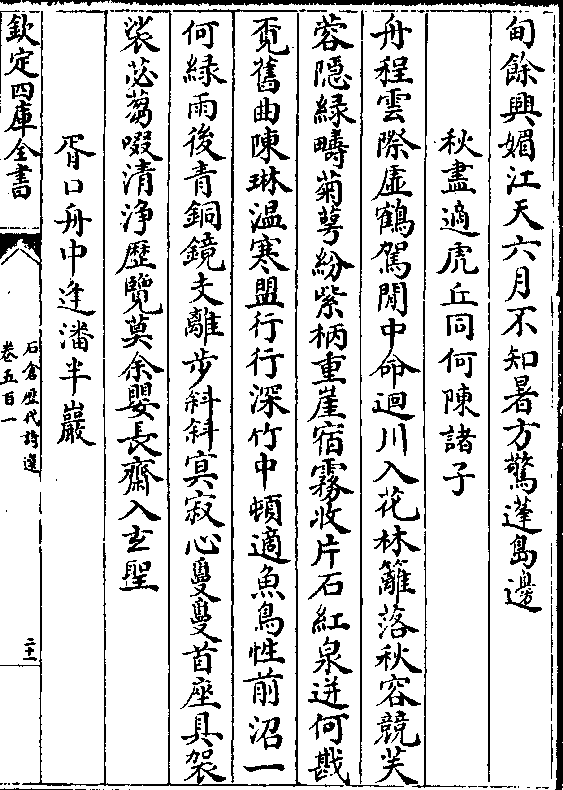 甸餘興媚江天六月不知暑方驚蓬島邊
秋盡適虎丘同何陳諸子
舟程雲際虛鶴駕閒中命迴川入花林籬落秋容競芙
蓉隱緑疇菊萼紛紫柄重崖宿霧收片石紅泉迸何戡
覔舊曲陳琳溫寒盟行行深竹中頓適魚鳥性前沼一
何緑雨後青銅鏡支離步斜斜冥寂心敻敻首座具袈
裟苾蒭啜清淨歴覽莫余嬰長齋入玄聖
胥口舟中逢潘半巖
欽定四庫全書
石倉歴代詩選
卷五百一
二十一